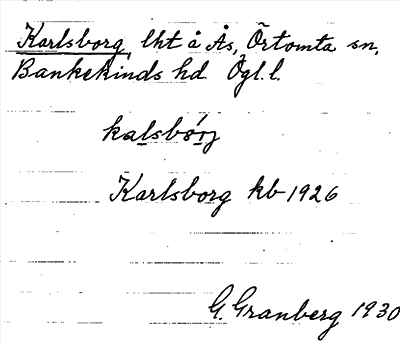 Karlsborg, lht å Ås, Örtomta sn,
Bankekinds hd Ögl. l.
Karlsborg kb 1926
G. Granberg 1930